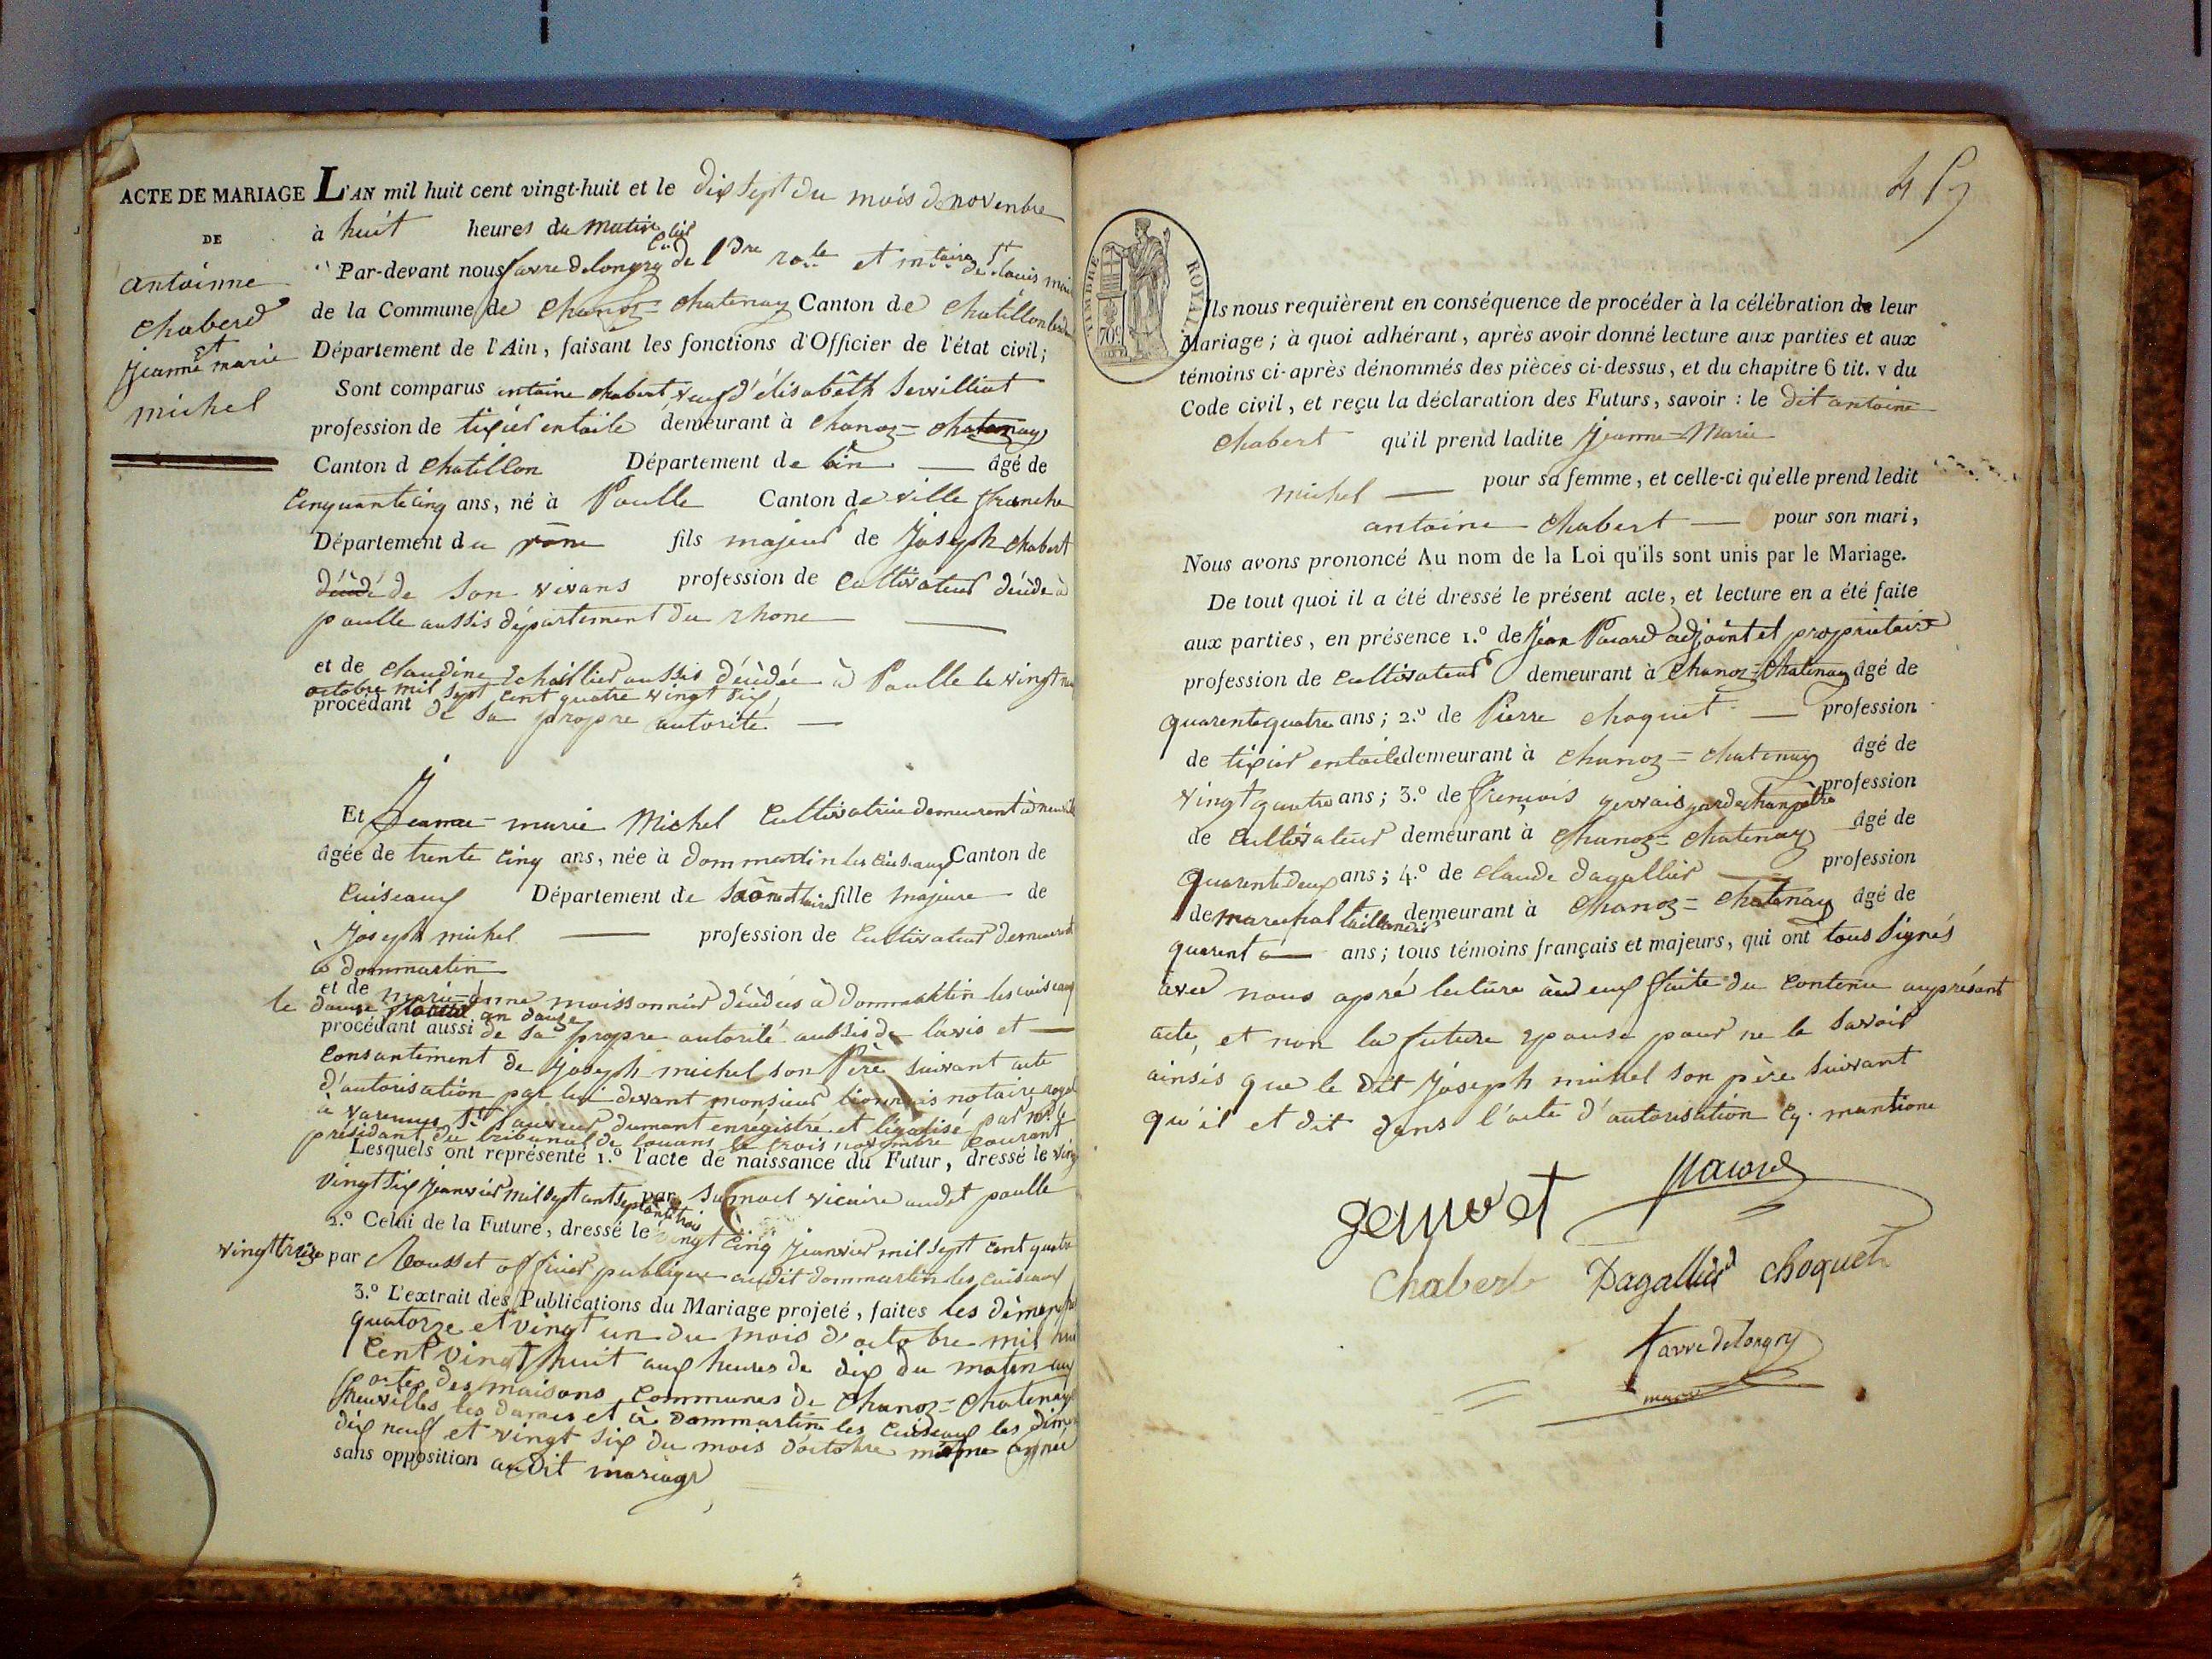 ACTE DE MARIAGE
DE
antoinne
chaberd
et
jeanne marie
michel
L'AN mil huit cent vingt-huit et le dix sept du mois de novenbre
à huit heures du matin
Par-devant nous favre delongry de l' et de st louis
de la Commune de chanoz = chatenay Canton de chatillon
Département de l'Ain, faisant les fonctions d'Officier de l'état civil;
Sont comparus antoine chabert veuf d'élisabeth Servilliat
profession de tixier entoile demeurant à chanoz = chatenay
Canton d chatillon Département de âgé de
cinquante cinq ans, né à Poulle Canton de ville franche
Département du rône fils majeur de Joseph chabert
décédé de son vivans profession de cultivateur décédé à
poulle aussis département du rhone
et de claudine aussis décédée à Poulle le vingt
octobre mil sept cent quatre vingt six
procédant de sa propre autorité
Et Jeanne = marie Michel Cultivatrice demeurent à
âgée de trente cinq ans, née à dommartin les cuiseaux Canton de
Cuiseaux Département de Saône et loire fille majeure de
Joseph michel profession de Cultivateur demeurent
à dommartin
et de marie anne moissonnier décédés à dommartin les cuiseaux
le douze an douze
procédant aussi de sa propre autorité aussis de l'avis et
consantement de joseph michel son Père suivant acte
d'autorisation par lui devant monsieur notaire royal
à varennes st sauveur dumant enrégistré et légalisé par mr le
présidant du tribunal de louans le trois novembre courant
Lesquels ont représenté 1.º l'acte de naissance du Futur, dressé le
vingt six janvier mil sept cent septante trois par vicaire audit poulle
2.º Celui de la Future, dressé le vingt cinq janvier mil sept cent quatre
vingt treize par Mousset officier publique audit dommartin les cuiseaux
3.º L'extrait des Publications du Mariage projeté, faites les dimanches
quatorze et vingt un du mois d'octobre mil huit
cent vingt huit aux heures de dix du maten aux
portes des maisons communes de Chanoz = chatenay
Neuvilles les dames et à dommartin les cuiseaux les dim
dix neuf et vingt six du mois d'octobre même année
sans opposition audit mariage
TIMBRE ROYAL
70c
Ils nous requièrent en conséquence de procéder à la célébration de leur
Mariage; à quoi adhérant, après avoir donné lecture aux parties et aux
témoins ci-après dénommés des pièces ci-dessus, et du chapitre 6 tit. v du
Code civil, et reçu la déclaration des Futurs, savoir: le dit antoine
chabert qu'il prend ladite Jeanne = Marie
michel pour sa femme, et celle-ci qu'elle prend ledit
antoine chabert pour son mari,
Nous avons prononcé Au nom de la Loi qu'ils sont unis par le Mariage.
De tout quoi il a été dressé le présent acte, et lecture en a été faite
aux parties, en présence 1.º de Jean Pacard adjoint et propriétaire
profession de cultivateur demeurant à Chanoz = chatenay âgé de
quarente quatre ans; 2.º de Pierre choquet profession
de tixier entoile demeurant à chanoz = chatenay âgé de
vingt quatre ans; 3.º de françois gervais garde champêtre profession
de cultivateur demeurant à chanoz = chatenay âgé de
quarente deux ans; 4.º de claude dagallier profession
de marechal taillandier demeurant à Chanoz = chatenay âgé de
quarente ans; tous témoins français et majeurs, qui ont tous signés
avec nous apré lecture à eux faite du contenu au présant
acte, et non la future epouse pour ne le savoir
ainsis que le dit joseph michel son père suivant
qu'il et dit dans l'acte d'autorisation cy. mantione
Chabert Dagallier choquet
favre delongry
maire